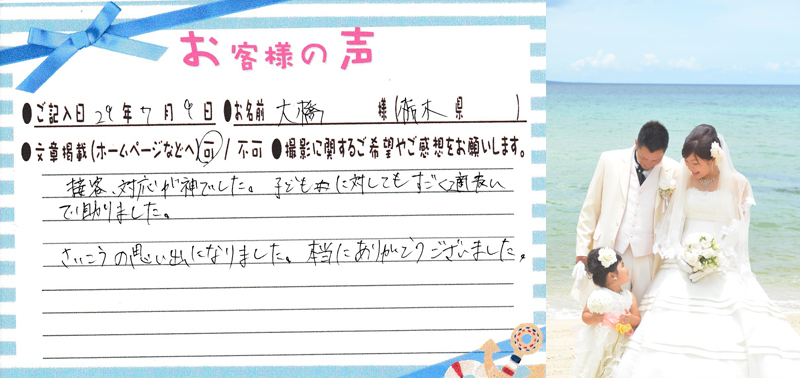 お客様の声
●ご記入日 29年7月9日 ●お名前 大橋 様(栃木県 )
●文章掲載(ホームページなどへ)可/不可 ●撮影に関するご希望やご感想をお願いします。
接客、対応が神でした。子どもに対してもすごく
で助かりました。
さいこうの思い出になりました。本当にありがとうございました。